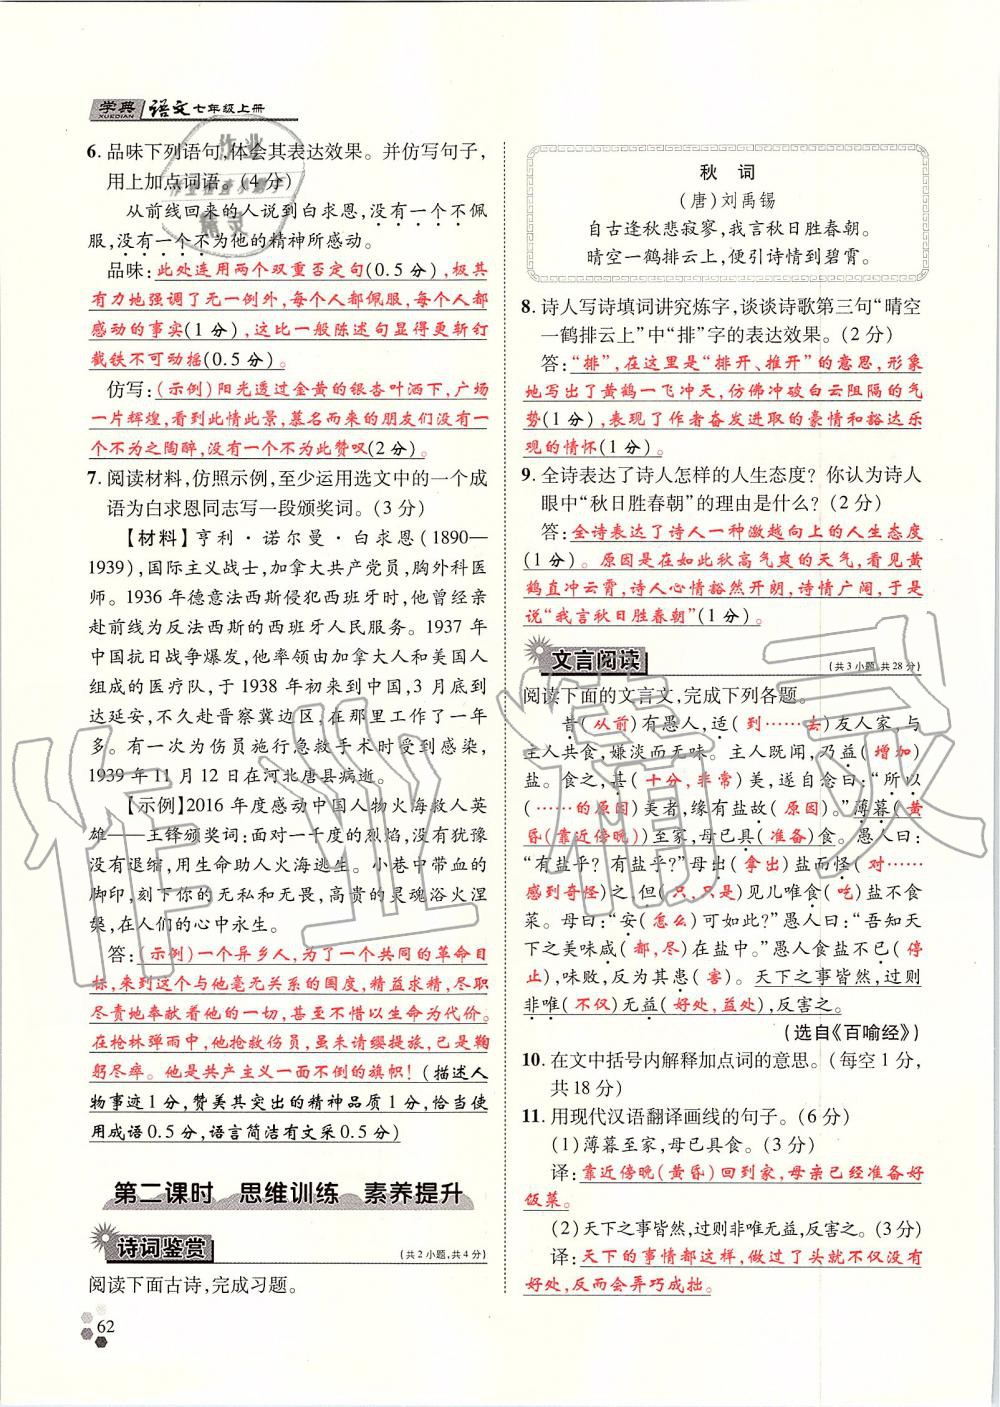 学典 XUEDIAN 语文七年级上册
6. 品味下列语句,体会其表达效果。并仿写句子,
用上加点词语。(4分)
从前线回来的人说到白求恩,没有一个不佩
服,没有一个不为他的精神所感动。
品味:此处连用两个双重否定句(0.5分),极其
有力地强调了无一例外,每个人都佩服,每个人都
感动的事实(1分),这比一般陈述句显得更斩钉
截铁不可动摇(0.5分)。
仿写:(示例)阳光透过金黄的银杏叶洒下,广场
一片辉煌,看到此情此景,慕名而来的朋友们没有一
个不为之陶醉,没有一个不为此赞叹(2分)。
7. 阅读材料,仿照示例,至少运用选文中的一个成
语为白求恩同志写一段颁奖词。(3分)
【材料】亨利·诺尔曼·白求恩(1890—
1939),国际主义战士,加拿大共产党员,胸外科医
师。1936年德意法西斯侵犯西班牙时,他曾经亲
赴前线为反法西斯的西班牙人民服务。1937年
中国抗日战争爆发,他率领由加拿大人和美国人
组成的医疗队,于1938年初来到中国,3月底到
达延安,不久赴晋察冀边区,在那里工作了一
年。有一次为伤员施行急救手术时受到感染,
1939年11月12日在河北唐县病逝。
【示例】2016年度感动中国人物火海救人英
雄——王锋颁奖词:面对一千度的烈焰,没有犹豫
没有退缩,用生命助人火海逃生。小巷中带血的
脚印,刻下你的无私和无畏,高贵的灵魂浴火涅
槃,在人们的心中永生。
答:(示例)一个异乡人,为了一个共同的革命目
标,来到这个与他毫无关系的国度,精益求精,尽职
尽责地奉献着他的一切,甚至不惜以生命为代价。
在枪林弹雨中,他抢救伤员,虽未请缨提旅,已是鞠
躬尽瘁。他是共产主义一面不倒的旗帜!(描述人
物事迹1分,赞美其突出的精神品质1分,恰当使
用成语0.5分,语言简洁有文采0.5分)
第二课时 思维训练 素养提升
诗词鉴赏 (共2小题,共4分)
阅读下面古诗,完成习题。
62
秋词
(唐)刘禹锡
自古逢秋悲寂寥,我言秋日胜春朝。
晴空一鹤排云上,便引诗情到碧霄。
8. 诗人写诗填词讲究炼字,谈谈诗歌第三句“晴空
一鹤排云上”中“排”字的表达效果。(2分)
答:“排”,在这里是“排开、推开”的意思,形象
地写出了黄鹤一飞冲天,仿佛冲破白云阻隔的气
势(1分),表现了作者奋发进取的豪情和豁达乐
观的情怀(1分)。
9. 全诗表达了诗人怎样的人生态度?你认为诗人
眼中“秋日胜春朝”的理由是什么?(2分)
答:全诗表达了诗人一种激越向上的人生态度
(1分)。原因是在如此秋高气爽的天气,看见黄
鹤直冲云霄,诗人心情豁然开朗,诗情广阔,于是
说“我言秋日胜春朝”(1分)。
文言阅读 (共3小题,共28分)
阅读下面的文言文,完成下列各题。
昔(从前)有愚人,适(到……去)友人家,与
主人共食,嫌淡而无味。主人既闻,乃益(增加)
盐。食之,甚(十分,非常)美,遂自念曰:“所以
(……的原因)美者,缘有盐故(原因)。”薄暮(黄
昏(靠近傍晚))至家,母已具(准备)食。愚人曰:
“有盐乎?有盐乎?”母出(拿出)盐而怪(对……
感到奇怪)之,但(只,只是)见儿唯食(吃)盐不食
菜。母曰:“安(怎么)可如此?”愚人曰:“吾知天
下之美味咸(都,尽)在盐中。”愚人食盐不已(停
止),味败,反为其患(害)。天下之事皆然,过则
非唯(不仅)无益(好处,益处),反害之。
(选自《百喻经》)
10. 在文中括号内解释加点词的意思。(每空1分,
共18分)
11. 用现代汉语翻译画线的句子。(6分)
(1)薄暮至家,母已具食。(3分)
译:靠近傍晚(黄昏)回到家,母亲已经准备好
饭菜。
(2)天下之事皆然,过则非唯无益,反害之。(3分)
译:天下的事情都这样,做过了头就不仅没有
好处,反而会弄巧成拙。
作业精灵